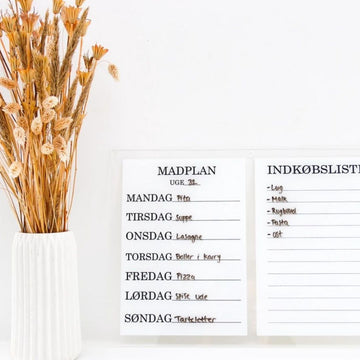 MADPLAN
UGE 32
MANDAG Pita
TIRSDAG Suppe
ONSDAG Lasagne
TORSDAG Boller i karry
FREDAG Pizza
LØRDAG Spise ude
SØNDAG Tarteletter
INDKØBSLISTE
- Løg
- Mælk
- Rugbrød
- Pasta
- Ost